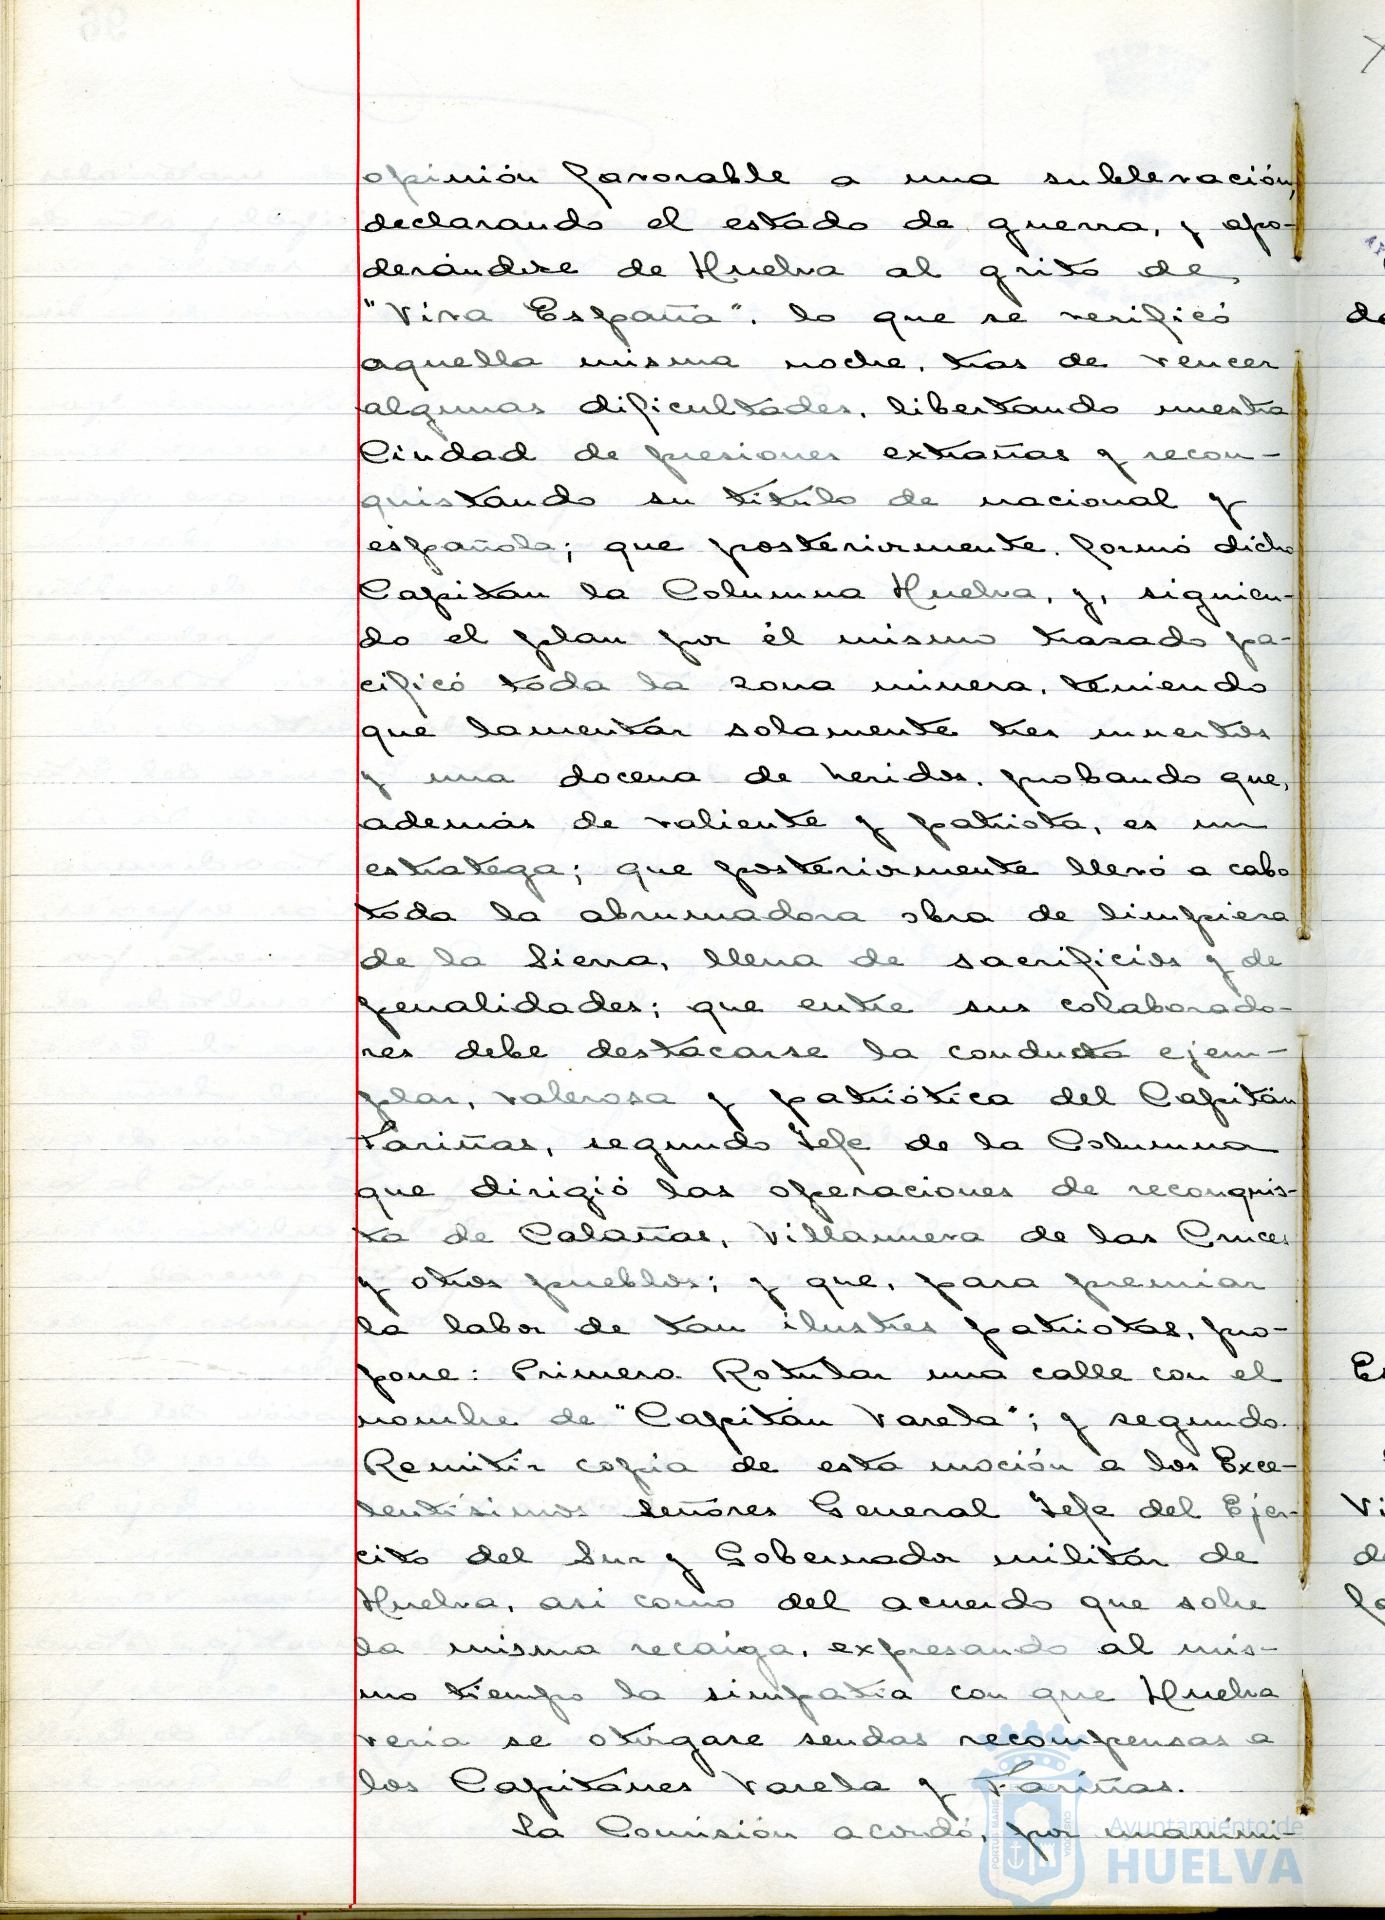 opinión favorable a una subleración,
declarando el estado de guerra, y apo-
derándose de Huelva al grito de
"Viva España". lo que se verificó
aquella misma noche, tras de vencer
algunas dificultades, libertando nuestra
Ciudad de presiones extrañas y recon-
quistando su título de nacional y
española; que posteriormente, formó dicho
Capitán la Columna Huelva, y, siguien-
do el plan por él mismo trazado pa-
cificó toda la zona minera, teniendo
que lamentar solamente tres muertos
y una docena de heridos, probando que,
además de valiente y patriota, es un
estratega; que posteriormente llevó a cabo
toda la abrumadora obra de limpieza
de la Sierra, llena de sacrificios y de
penalidades; que entre sus colaborado-
res debe destacarse la conducta ejem-
plar, valerosa y patriótica del Capitán
Fariñas, segundo Jefe de la Columna
que dirigió las operaciones de reconquis-
ta de Calañas, Villanueva de las Cruces
y otros pueblos; y que, para premiar
la labor de tan ilustres patriotas, pro-
pone: Primero. Rotular una calle con el
nombre de "Capitán Varela"; y segundo.
Remitir copia de esta moción a los Exce-
lentísimos señores General Jefe del Ejér-
cito del Sur y Gobernador militar de
Huelva, así como del acuerdo que sobre
la misma recaiga, expresando al mis-
mo tiempo la simpatía con que Huelva
vería se otorgase sendas recompensas a
los Capitanes Varela y Fariñas.
La Comisión acordó, por unanimi-
Ayuntamiento de
HUELVA